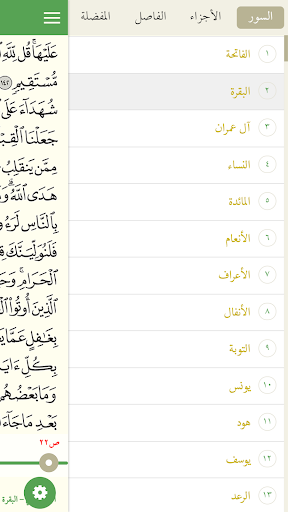 السور الأجزاء الفاصل المفضلة
١ الفاتحة
٢ البقرة
٣ آل عمران
٤ النساء
٥ المائدة
٦ الأنعام
٧ الأعراف
٨ الأنفال
٩ التوبة
١٠ يونس
١١ هود
١٢ يوسف
١٣ الرعد
عَلَيْهَا ۚ قُل لِّلَّهِ
مُّسْتَقِيمٍ ١٤٢
شُهَدَاءَ عَلَى
جَعَلْنَا الْقِبْ
مِمَّن يَنقَلِبُ
هَدَى اللَّهُ ۗ وَمَ
بِالنَّاسِ لَرَءُو
فَلَنُوَلِّيَنَّكَ قِ
الْحَرَامِ ۚ وَحَ
الَّذِينَ أُوتُوا
بِغَافِلٍ عَمَّا يَ
بِكُلِّ ءَايَ
وَمَا بَعْضُهُم
بَعْدِ مَا جَاءَ
ص٢٢
- البقرة